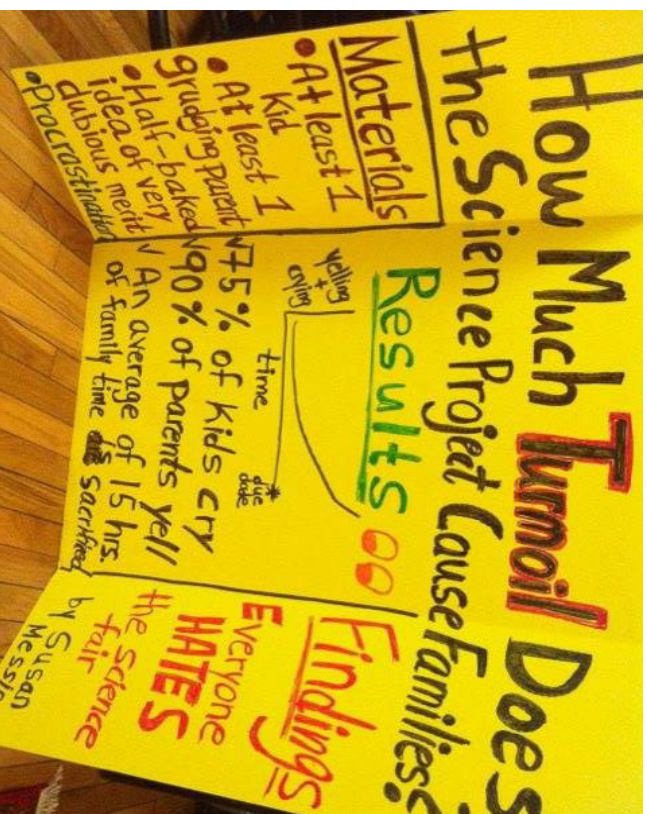 How Much Turmoil Does
the Science Project Cause Families?
Materials
• At least 1
Kid
• At least 1
grudging parent
• Half-baked
idea of very
dubious merit
• Procrastination
Results
yelling
+
crying
time
due
date
√ 75% of kids cry
√ 90% of parents yell
√ An average of 15 hrs.
of family time is sacrificed
Findings
Everyone
HATES
the science
fair
by Susan
Messi